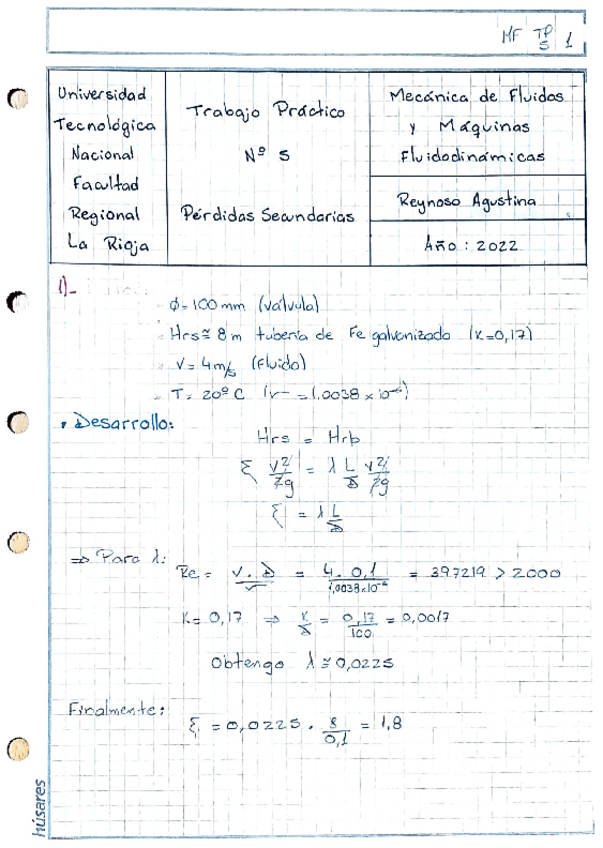 MF TP 5 1
Universidad Tecnológica Nacional Facultad Regional La Rioja
Trabajo Práctico Nº 5
Pérdidas Secundarias
Mecánica de Fluidos y Máquinas Fluidodinámicas
Reynoso Agustina
Año : 2022
1)_
- ϕ= 100 mm (válvula)
- Hrs ≅ 8 m tubería de Fe galvanizado (K=0,17)
- V = 4 m/s (Fluido)
- T = 20º C (ν = 1.0038 x 10⁻⁶)
• Desarrollo:
Hrs = Hrp
ξ v²/2g = λ L/D v²/2g
ξ = λ L/D
⇒ Para λ:
Re = V . D / ν = 4 . 0,1 / 1,0038x10⁻⁶ = 397219 > 2000
K= 0,17 ⇒ K/D = 0,17/100 = 0,0017
Obtengo λ ≅ 0,0225
Finalmente:
ξ = 0,0225 . 8/0,1 = 1,8
húsares